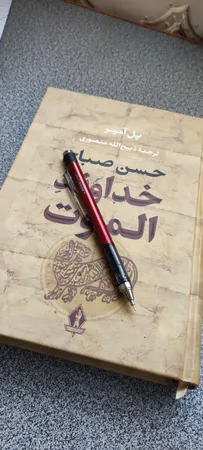 پل آمیر
ترجمهٔ ذبیح‌الله منصوری
حسن صباح
خداوند
الموت